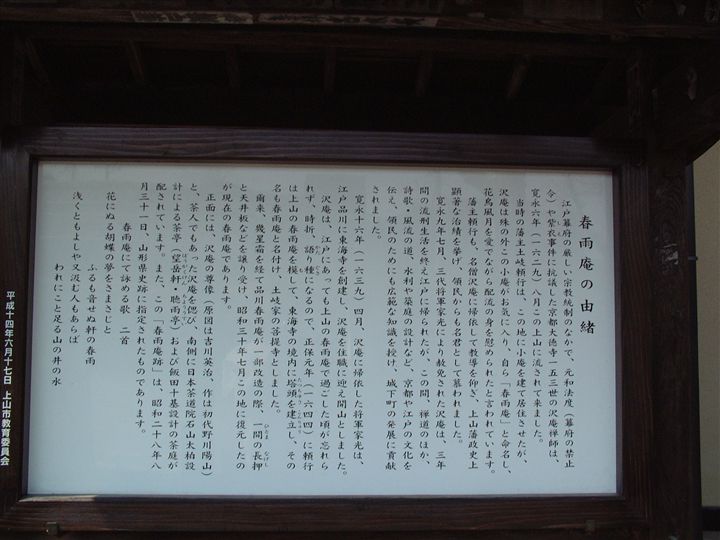 春雨庵の由緒
江戸幕府の厳しい宗教統制のなかで、元和法度（幕府の禁止
令）や紫衣事件に抗議した京都大徳寺一五三世の沢庵禅師は、
寛永六年（一六二九）八月この上山に流されて来ました。
当時の藩主土岐頼行は、この地に小庵を建て居住させたが、
沢庵は殊の外この小庵がお気に入り、自ら「春雨庵」と命名し、
花鳥風月を愛でながら配流の身を慰められたと言われています。
藩主頼行も、名僧沢庵に帰依して教導を仰ぎ、上山藩政史上
顕著な治績を挙げ、領民からも名君として慕われました。
寛永九年七月、三代将軍家光により赦免された沢庵は、三年
間の流刑生活を終え江戸に帰られたが、この間、禅道のほか、
詩歌・風流の道、水利や築庭の設計など、京都や江戸の文化を
伝え、領民のためにも広範な知識を授け、城下町の発展に貢献
されました。
寛永十六年（一六三九）四月、沢庵に帰依した将軍家光は、
江戸品川に東海寺を創建し、沢庵を住職に迎え開山としました。
沢庵は、江戸にあっても上山の春雨庵で過ごした頃が忘れら
れず、時折、語り種になるので、正保元年（一六四四）に頼行
は上山の春雨庵を模して、東海寺の境内に塔頭を建立し、その
名も春雨庵と名付け、土岐家の菩提寺としました。
爾来、幾星霜を経て品川春雨庵が一部改造の際、一間の長押
と天井板などを譲り受け、昭和三十年七月この地に復元したの
が現在の春雨庵であります。
正面には、沢庵の尊像（原図は吉川英治、作は初代野川陽山）
と、茶人でもあった沢庵を偲び、南側に日本茶道院石山太柏設
計による茶亭（望岳軒・聴雨亭）および飯田十基設計の茶庭が
配されています。また、この「春雨庵跡」は、昭和二十八年八
月三十一日、山形県史跡に指定されたものであります。
春雨庵にて詠める歌　二首
花にぬる胡蝶の夢をさまさじと
ふるも音せぬ軒の春雨
浅くともよしや又汲む人もあらば
われにこと足る山の井の水
平成十四年六月十七日　上山市教育委員会